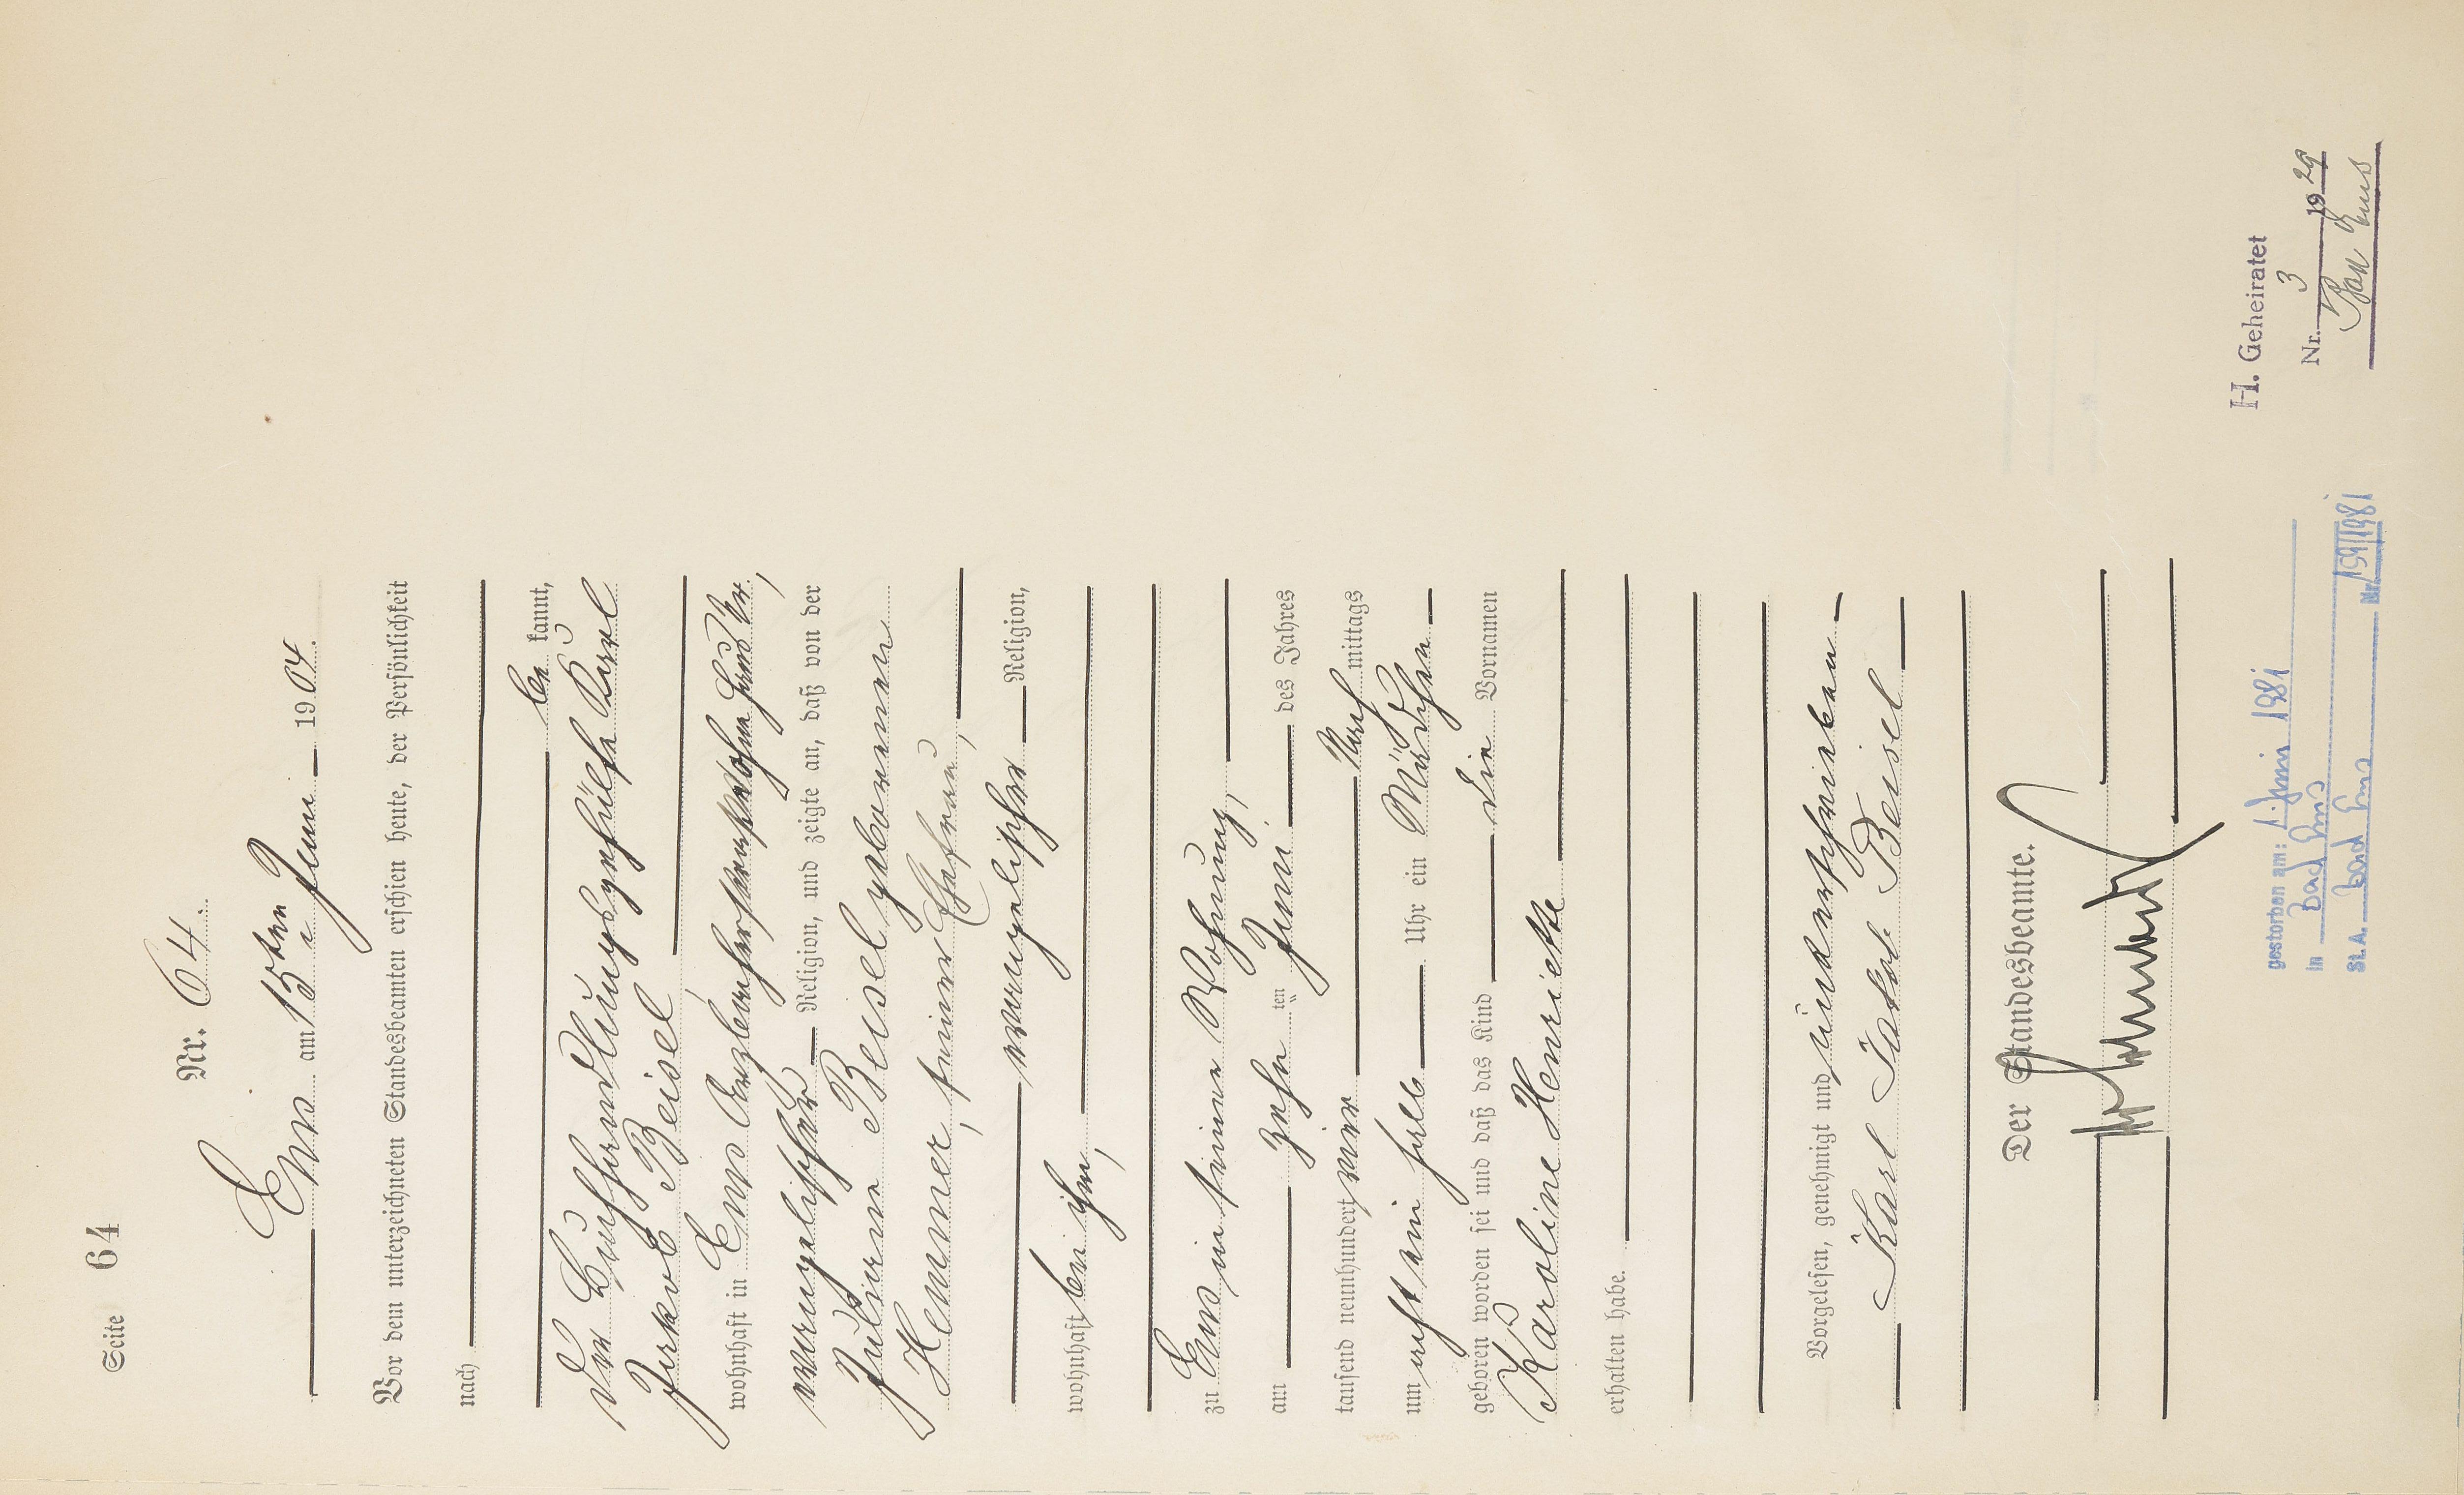 Seite 64
Nr. 64.
Ems am 15ten Juni 1904.
Vor dem unterzeichneten Standesbeamten erschien heute, der Persönlichkeit
nach
be kannt,
der Buchhandlungsgehülfe Karl
Jakob Beisel,
wohnhaft in Ems
evangelischer Religion, und zeigte an, daß von der
Juliane Beisel geborenen
Hemmer, seiner Ehefrau,
evangelischer Religion,
wohnhaft bei ihm,
zu Ems in seiner Wohnung,
am zehn ten Juni des Jahres
tausend neunhundert vier Nach mittags
um acht ein halb Uhr ein Mädchen
geboren worden sei und daß das Kind die Vornamen
Karoline Henriette
erhalten habe.
Vorgelesen, genehmigt und unterschrieben
Karl Jakob Beisel
Der Standesbeamte.
gestorben am: 1. Juni 1981
in Bad Ems
St.A. Bad Ems Nr. 159/1981
H. Geheiratet
Nr. 3 1929
Bad Ems